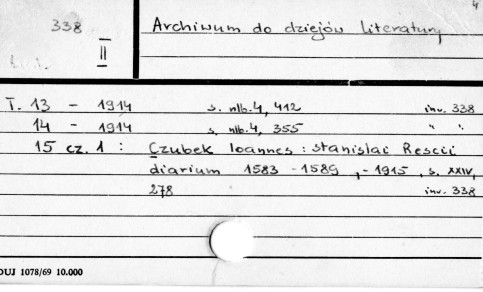 4
338 Archiwum do dziejów literatury
II
T. 13 - 1914 s. nlb. 4, 412 inv. 338
14 - 1914 s. nlb. 4, 355 " "
15 cz. 1 : Czubek Ioannes : Stanislai Rescii
diarium 1583 - 1589, - 1915, s. XXIV,
278 inv. 338
DUJ 1078/69 10.000